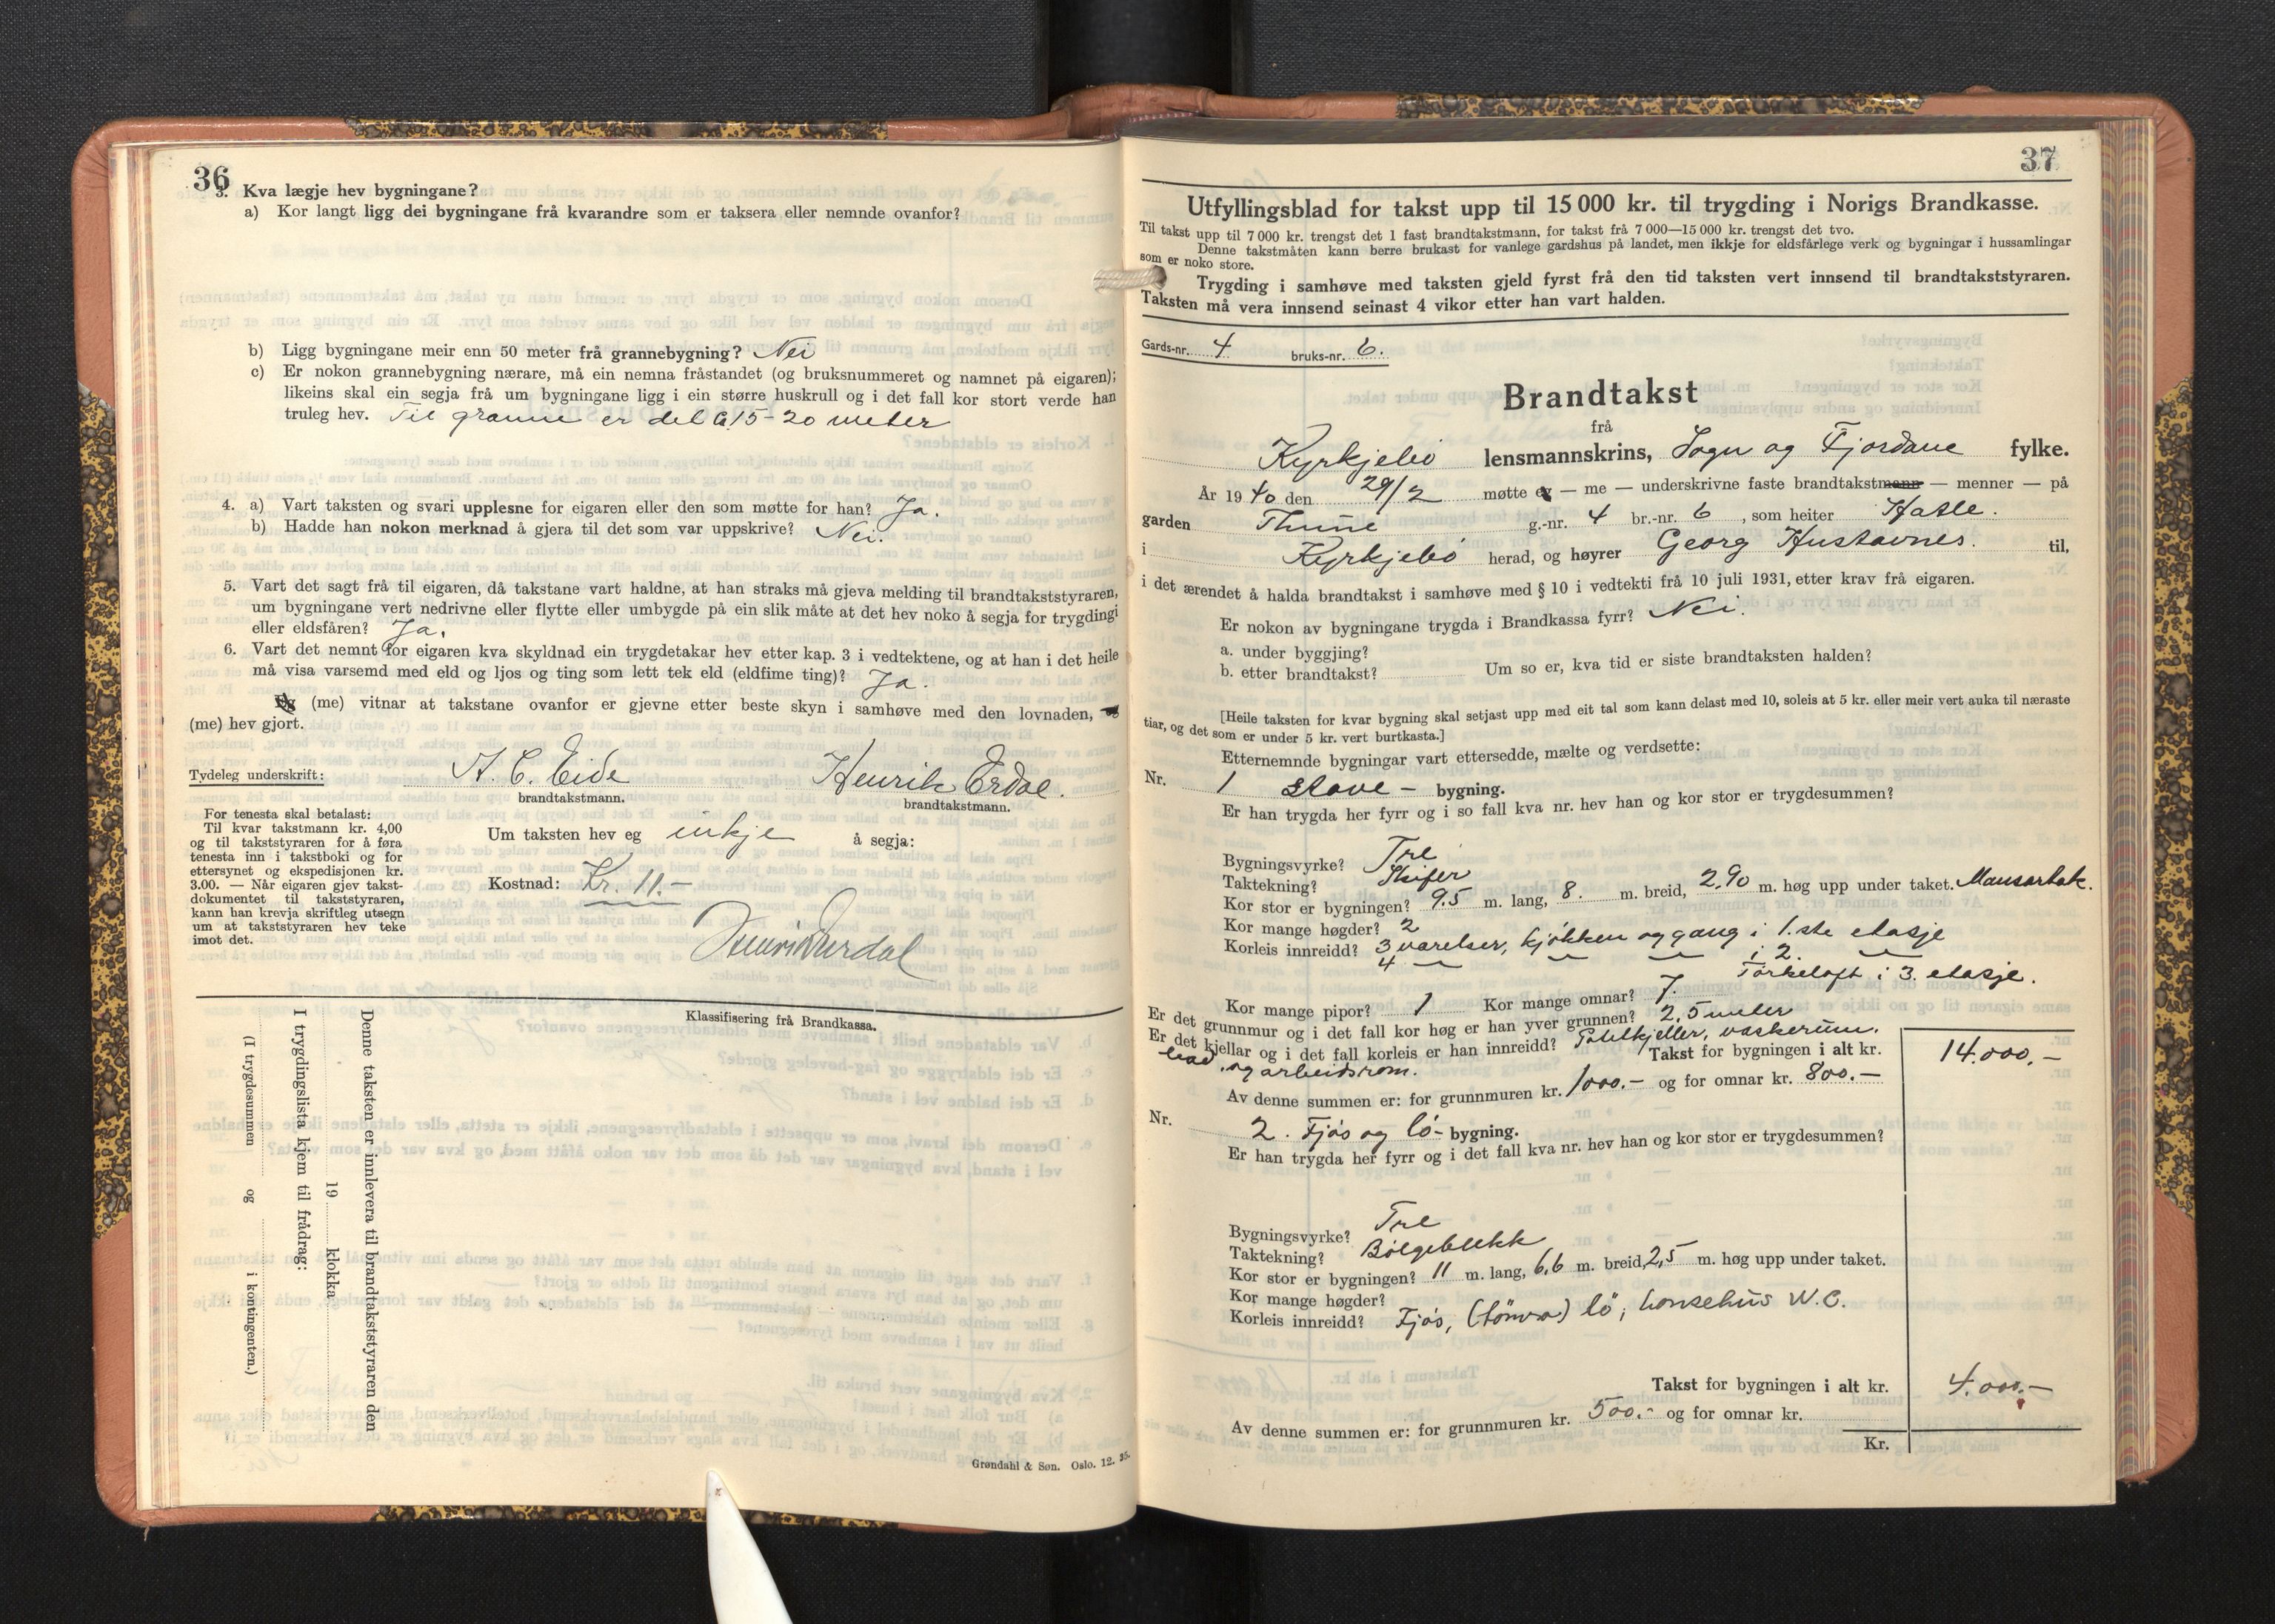 36
3. Kva lægje hev bygningane?
a) Kor langt ligg dei bygningane frå kvarandre som er taksera eller nemnde ovanfor?
b) Ligg bygningane meir enn 50 meter frå grannebygning? Nei
c) Er nokon grannebygning nærare, må ein nemna fråstandet (og bruksnummeret og namnet på eigaren);
likeins skal ein segja frå um bygningane ligg i ein større huskrull og i det fall kor stort verde han
truleg hev. Til granne er det ca 15-20 meter
4. a) Vart taksten og svari upplesne for eigaren eller den som møtte for han? Ja.
b) Hadde han nokon merknad å gjera til det som var uppskrive? Nei.
5. Vart det sagt frå til eigaren, då takstane vart haldne, at han straks må gjeva melding til brandtakststyraren,
um bygningane vert nedrivne eller flytte eller umbygde på ein slik måte at det hev noko å segja for trygdingi
eller eldsfåren? Ja.
6. Vart det nemnt for eigaren kva skyldnad ein trygdetakar hev etter kap. 3 i vedtektene, og at han i det heile
må visa varsemd med eld og ljos og ting som lett tek eld (eldfime ting)? Ja.
Eg (me) vitnar at takstane ovanfor er gjevne etter beste skyn i samhøve med den lovnaden, eg
(me) hev gjort.
Tydeleg underskrift: A. C. Eide Henrik Erdal.
brandtakstmann. brandtakstmann.
For tenesta skal betalast:
Til kvar takstmann kr. 4,00
og til takststyraren for å føra
tenesta inn i takstboki og for
ettersynet og ekspedisjonen kr.
3.00. — Når eigaren gjev takst-
dokumentet til takststyraren,
kann han krevja skriftleg utsegn
um at takststyraren hev teke
imot det.
Um taksten hev eg inkje å segja:
Kostnad: Kr. 11.-
Klassifisering frå Brandkassa.
Denne taksten er innlevera til brandtakststyraren den
19 klokka
I trygdingslista kjem til frådrag:
(I trygdesummen og i kontingenten.)
Grøndahl & Søn. Oslo. 12. 35.
37
Utfyllingsblad for takst upp til 15 000 kr. til trygding i Norigs Brandkasse.
Til takst upp til 7 000 kr. trengst det 1 fast brandtakstmann, for takst frå 7 000—15 000 kr. trengst det tvo.
Denne takstmåten kann berre brukast for vanlege gardshus på landet, men ikkje for eldsfårlege verk og bygningar i hussamlingar
som er noko store.
Trygding i samhøve med taksten gjeld fyrst frå den tid taksten vert innsend til brandtakststyraren.
Taksten må vera innsend seinast 4 vikor etter han vart halden.
Gards-nr. 4 bruks-nr. 6.
Brandtakst
frå
Kyrkjebø lensmannskrins, Sogn og Fjordane fylke.
År 1940 den 29/2 møtte eg — me — underskrivne faste brandtakstmann — menner — på
garden Thune g.-nr. 4 br.-nr. 6, som heiter Hatle.
i Kyrkjebø herad, og høyrer Georg Hustavnes. til,
i det ærendet å halda brandtakst i samhøve med § 10 i vedtekti frå 10 juli 1931, etter krav frå eigaren.
Er nokon av bygningane trygda i Brandkassa fyrr? Nei.
a. under byggjing?
b. etter brandtakst? Um so er, kva tid er siste brandtaksten halden?
[Heile taksten for kvar bygning skal setjast upp med eit tal som kann delast med 10, soleis at 5 kr. eller meir vert auka til næraste
tiar, og det som er under 5 kr. vert burtkasta.]
Etternemnde bygningar vart ettersedde, mælte og verdsette:
Nr. 1 Stove - bygning.
Er han trygda her fyrr og i so fall kva nr. hev han og kor stor er trygdesummen?
Bygningsvyrke? Tre
Taktekning? Skifer
Kor stor er bygningen? 9.5 m. lang, 8. m. breid, 2,90 m. høg upp under taket. Mansartak.
Kor mange høgder? 2
Korleis innreidd? 3 værelser, kjøkken og gang i 1.ste etasje
4 — — — i 2. —
Tørkeloft i 3. etasje.
Kor mange pipor? 1 Kor mange omnar? 7.
Er det grunnmur og i det fall kor høg er han yver grunnen? 2,5 meter
Er det kjellar og i det fall korleis er han innreidd? Potetkjeller, vaskerum,
bad, og arbeidsrom. Takst for bygningen i alt kr. 14.000,-
Av denne summen er: for grunnmuren kr. 1000.- og for omnar kr. 800.-
Nr. 2. Fjøs og lö- bygning.
Er han trygda her fyrr og i det fall kva nr. hev han og kor stor er trygdesummen?
Bygningsvyrke? Tre
Taktekning? Bølgeblekk
Kor stor er bygningen? 11 m. lang, 6,6 m. breid, 2,5 m. høg upp under taket.
Kor mange høgder?
Korleis innreidd? Fjøs, lö, hønsehus W.C.
Takst for bygningen i alt kr. 4.000.-
Av denne summen er: for grunnmuren kr. 500.- og for omnar kr.
Kr.